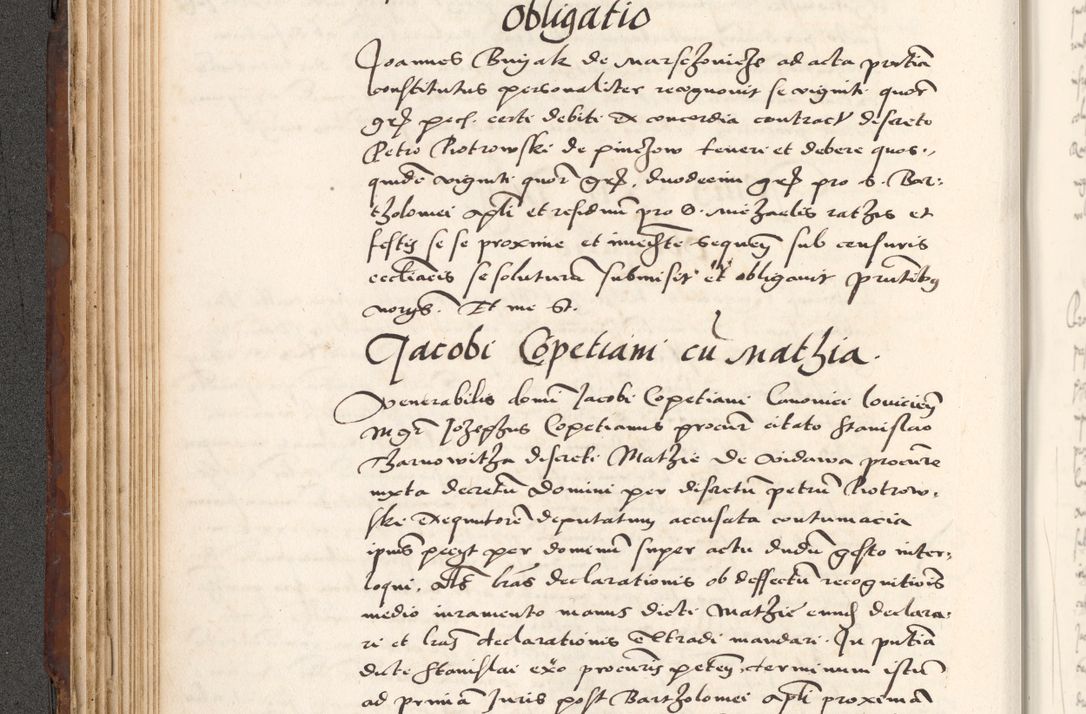 obligatio
Joannes Buyak de Marschowicze ad acta pñtia
constitutus personaliter recognovit se viginti quor
grš pecũ certi debiti ex concordia contract discreto
Petro Piotrowski de pinczow teneri et debere quos.,
quidẽ viginti quor grš, duodecim grš pro S. Bar:
tholomei apli et residuũ pro S. Michaelis ratheis et
festis se se proxime et immedte sequeñ sub censuris
ecclĩacis se soluturũ submisit et obligavit pñtibus
norys. Et me St.
Jacobi Copetiani cũ Mathia.
Venerabilis domĩ Jacobi Copetiani Canonici loviciẽñ
Mgr Josephus Copetianus procur citato Stanislao
Tharnowitha discreti Mathie de Vidawa procure
iuxta decretũ domini per discretũ petrũ Piotrow:
ski exequutorẽ deputatum accusata contumacia
ipius pecyt per dominũ super actu dudũ gesto inter:
loqui, als lras declarationis ob deffectũ recognitiois
medio iuramento manus dicti Mathie eund declara:
ri et lras declarationis extradi mandari. In pñtia
dicte Stanislai exõ procuris peteñ terminum istũ
ad primã Juris post Bartholomei apli proximã